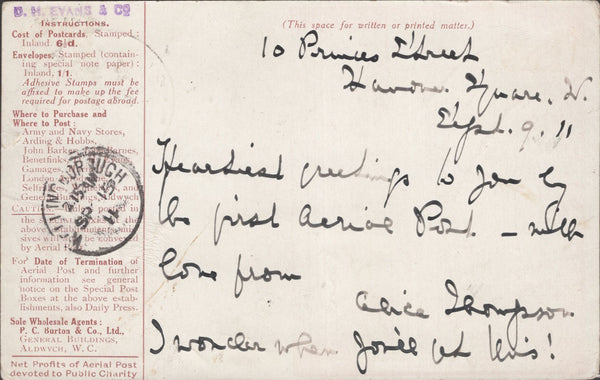 D. H. EVANS & Co
INSTRUCTIONS.
Cost of Postcards, Stamped:
Inland 6½d.
Envelopes, Stamped (contain-
ing special note paper):
Inland, 1/1.
Adhesive Stamps must be
affixed to make up the fee
required for postage abroad.
Where to Purchase and
Where to Post:
Army and Navy Stores,
Arding & Hobbs,
John Barker
Benetfinks
Gamages,
London
Selfri
General Buildings, Aldwych
CAUTION
the
sives will be conveyed
by Aerial
For Date of Termination of
Aerial Post and further
information see general
notice on the Special Post
Boxes at the above estab-
lishments, also Daily Press.
Sole Wholesale Agents:
P. C. Burton & Co., Ltd.,
GENERAL BUILDINGS,
ALDWYCH, W. C.
Net Profits of Aerial Post
devoted to Public Charity
(This space for written or printed matter.)
10 Princes Street
Hanover Square. W.
Sept. 9. 11
Heartiest greetings to you by
the first Aerial Post. – with
love from
Alice Thompson
I wonder when you'll get this!